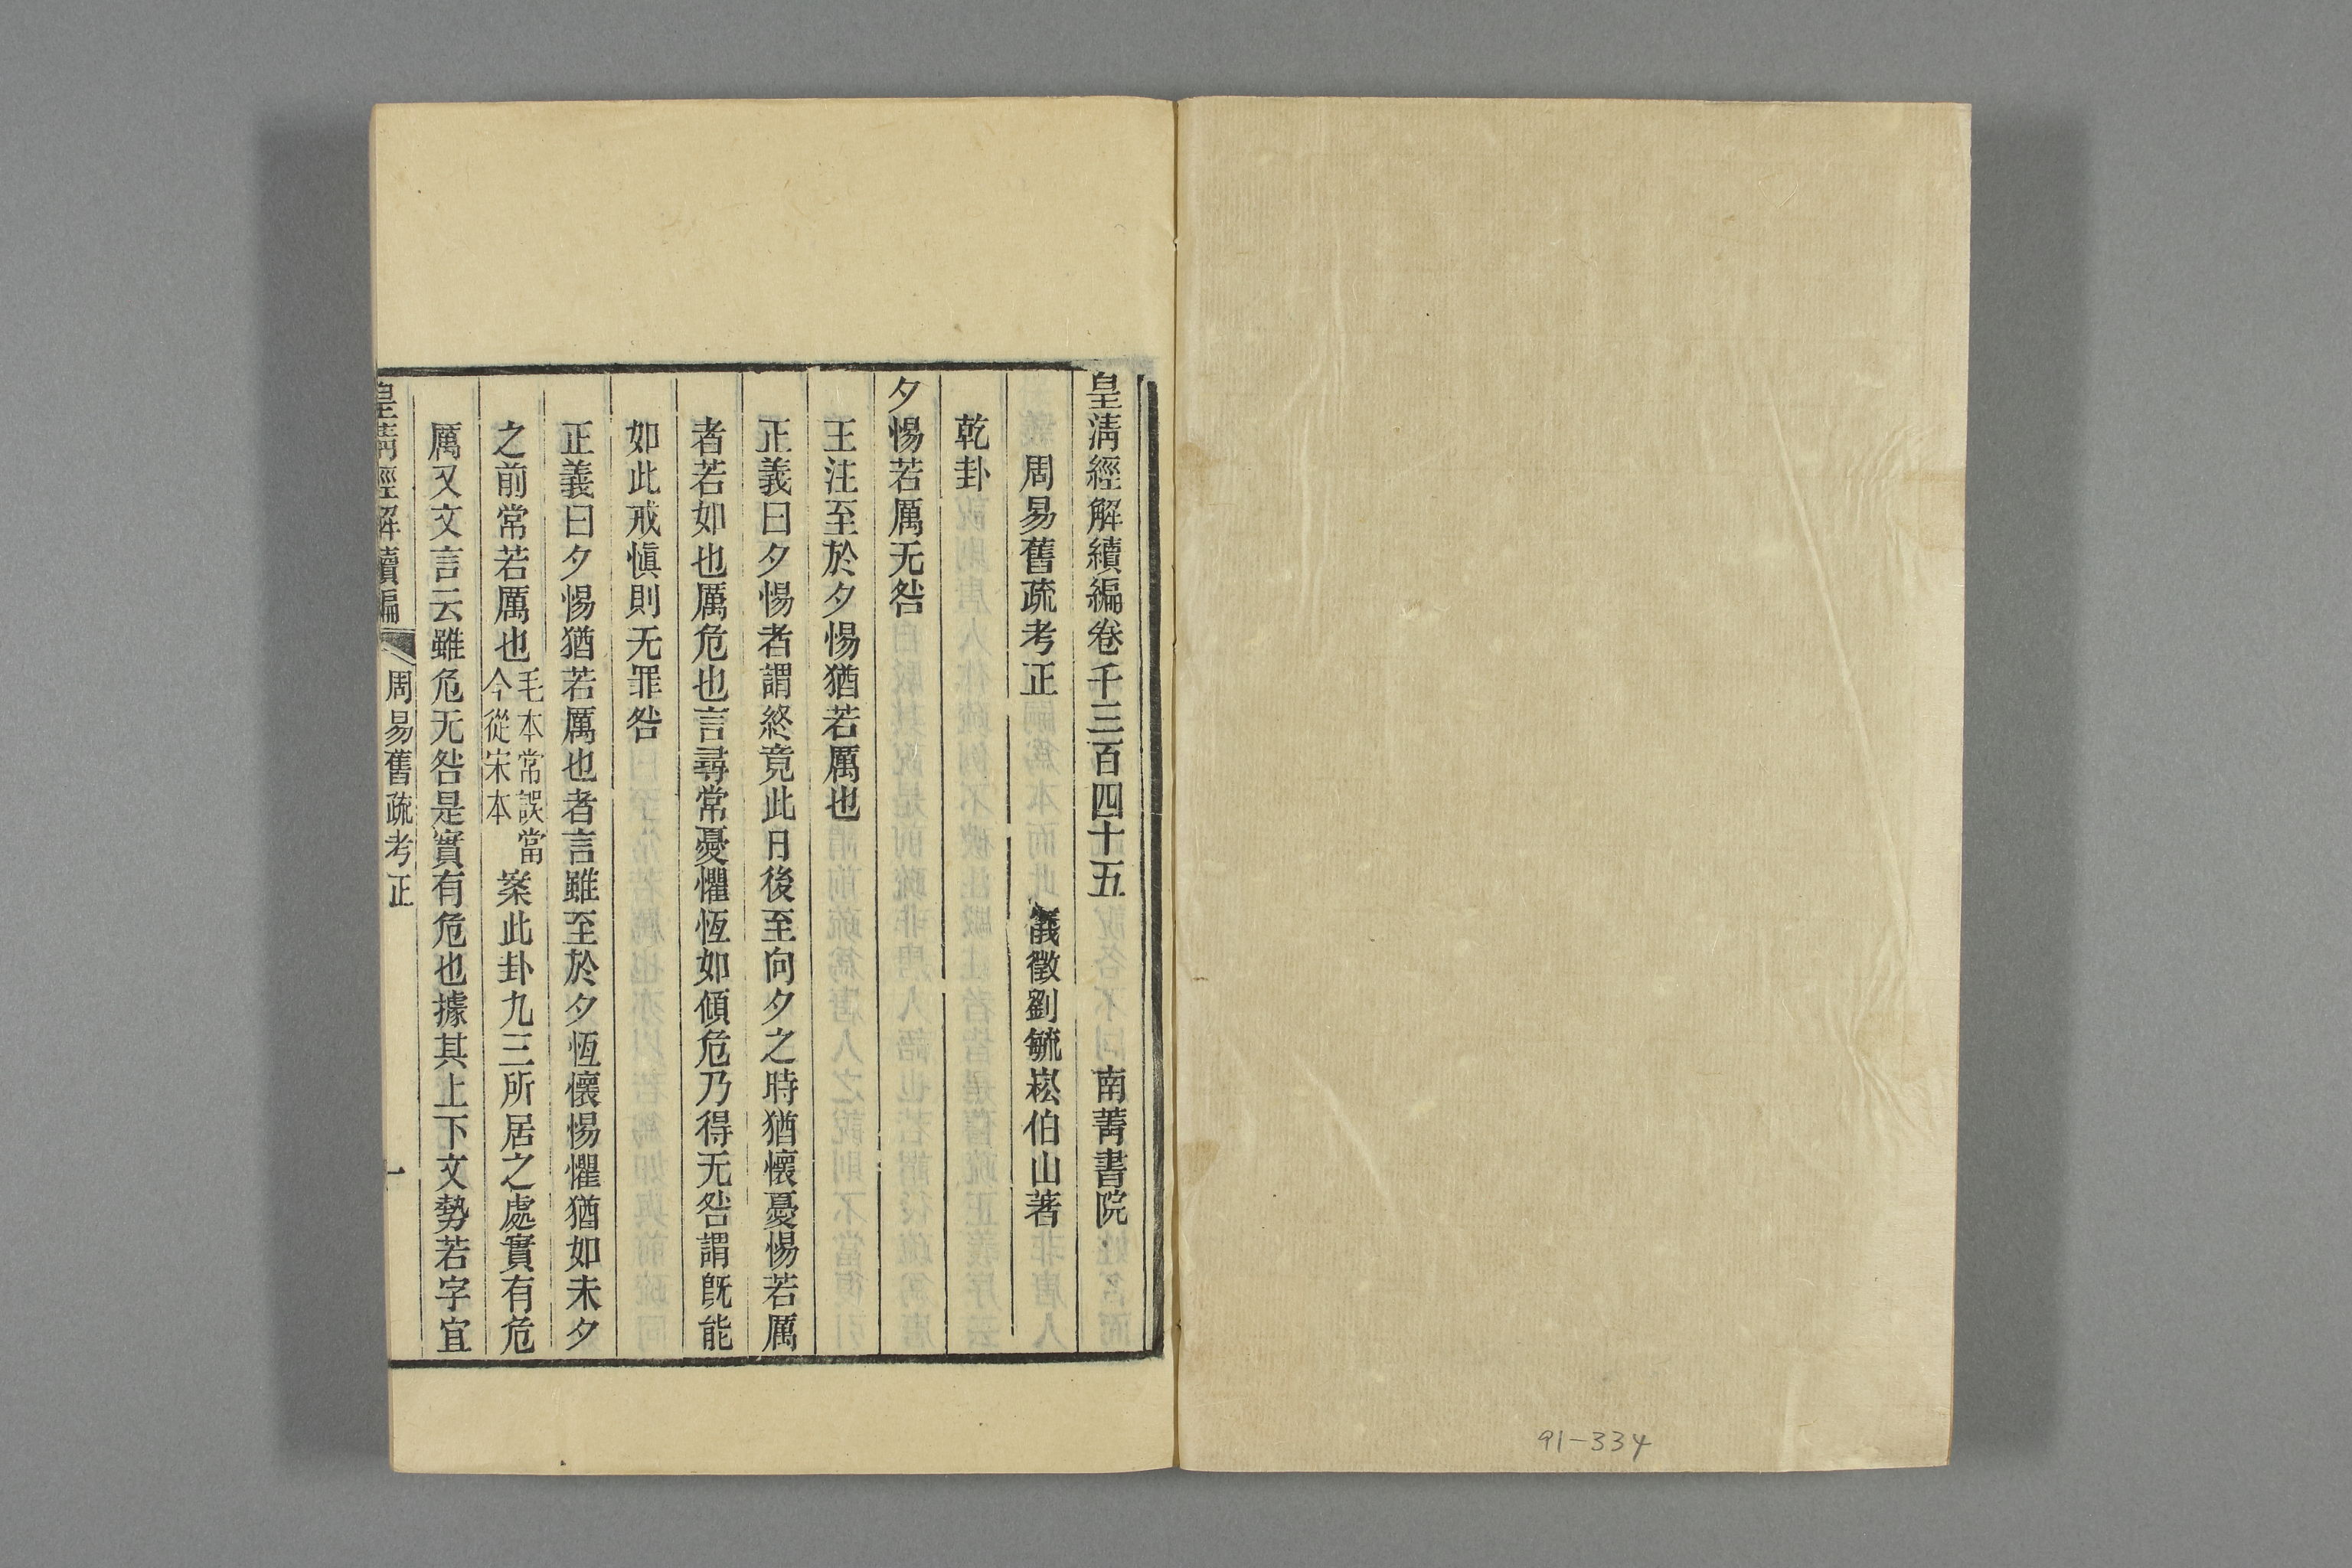 皇清經解續編卷千三百四十五 南菁書院
周易舊疏考正 儀徵劉毓崧伯山著
乾卦
夕惕若厲无咎
王注至於夕惕猶若厲也
正義曰夕惕者謂終竟此日後至向夕之時猶懷憂惕若厲
者若如也厲危也言尋常憂懼恆如傾危乃得无咎謂旣能
如此戒愼則无罪咎
正義曰夕惕猶若厲也者言雖至於夕恆懷惕懼猶如未夕
之前常若厲也毛本常誤當今從宋本案此卦九三所居之處實有危
厲又文言云雖危无咎是實有危也據其上下文勢若字宜
皇清經解續編 周易舊疏考正 一
91-334